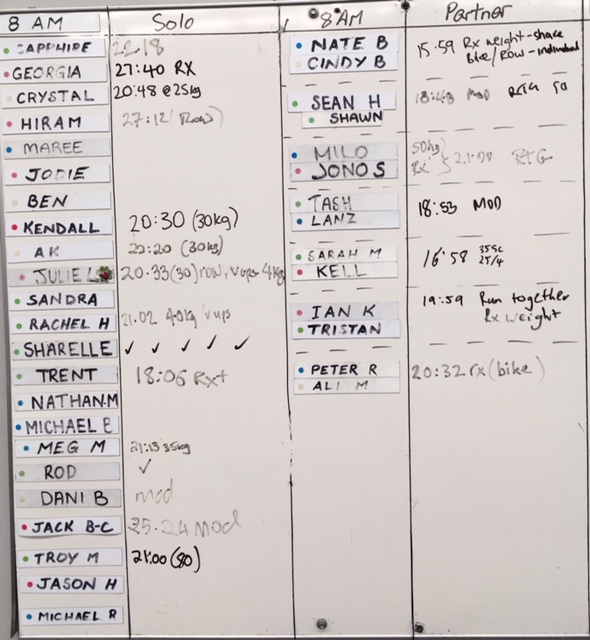 8 AM Solo
SAPPHIRE 22.18
GEORGIA 27:40 RX
CRYSTAL 20:48 @ 25kg
HIRAM 27:12 (Row)
MAREE
JODIE
BEN
KENDALL 20:30 (30kg)
AK 22:20 (30kg)
JULIE L 20:33(30) row, vups 4kg
SANDRA
RACHEL H 21.02 40kg vups
SHARELLE ✓ ✓ ✓ ✓ ✓
TRENT 18:06 Rx+
NATHAN.M
MICHAEL B
MEG M 21:13 35kg
ROD ✓
DANI B mod
JACK B-C 25.24 Mod
TROY M 21:00 (50)
JASON H
MICHAEL R
8 AM Partner
NATE B 15:59 Rx weight-share
CINDY B bike/Row-individual
SEAN H 18:48 MOD
SHAWN
MILO 50kg
JONO S Rx } 21.00 RTG
TASH 18:53 MOD
LANZ
SARAH M 16:58
KELL 25/4
IAN K 19:59 Run together
TRISTAN Rx weight
PETER R 20:32 rx (bike)
ALI M